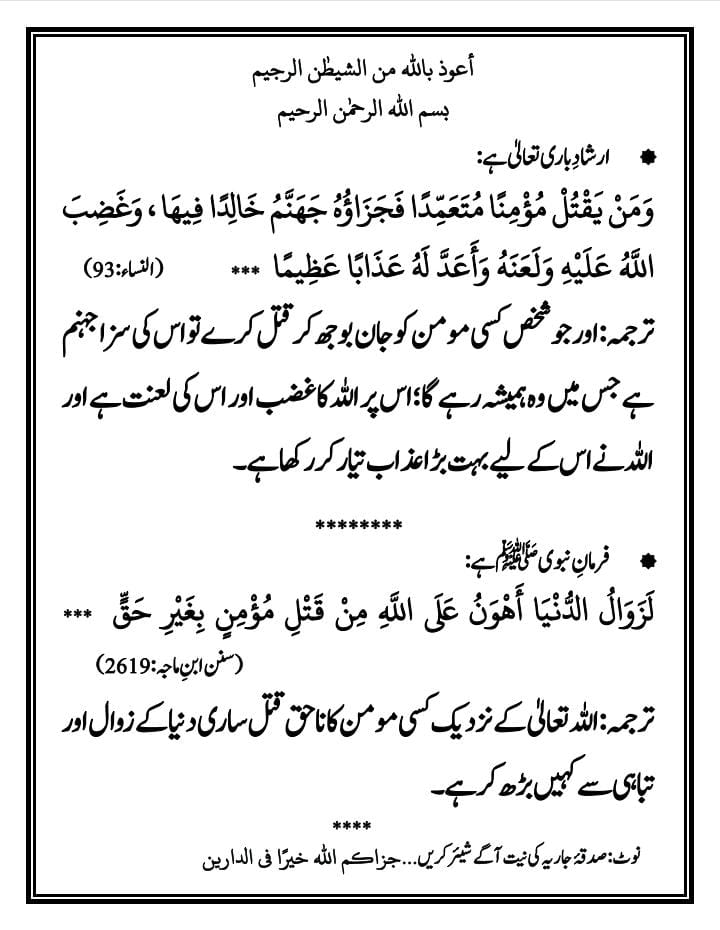 أعوذ بالله من الشيطٰن الرجيم
بسم الله الرحمٰن الرحيم
ارشادِ باری تعالیٰ ہے:
وَمَنْ يَقْتُلْ مُؤْمِنًا مُتَعَمِّدًا فَجَزَاؤُهُ جَهَنَّمُ خَالِدًا فِيهَا ، وَغَضِبَ
اللَّهُ عَلَيْهِ وَلَعَنَهُ وَأَعَدَّ لَهُ عَذَابًا عَظِيمًا *** (النساء:93)
ترجمہ: اور جو شخص کسی مومن کو جان بوجھ کر قتل کرے تو اس کی سزا جہنم
ہے جس میں وہ ہمیشہ رہے گا؛ اس پر اللہ کا غضب اور اس کی لعنت ہے اور
اللہ نے اس کے لیے بہت بڑا عذاب تیار کر رکھا ہے۔
********
فرمانِ نبوی ﷺ ہے:
لَزَوَالُ الدُّنْيَا أَهْوَنُ عَلَى اللَّهِ مِنْ قَتْلِ مُؤْمِنٍ بِغَيْرِ حَقٍّ ***
(سنن ابنِ ماجہ:2619)
ترجمہ: اللہ تعالیٰ کے نزدیک کسی مومن کا ناحق قتل ساری دنیا کے زوال اور
تباہی سے کہیں بڑھ کر ہے۔
****
نوٹ: صدقۂ جاریہ کی نیت آگے شیئر کریں...جزاكم الله خيرًا فى الدارين